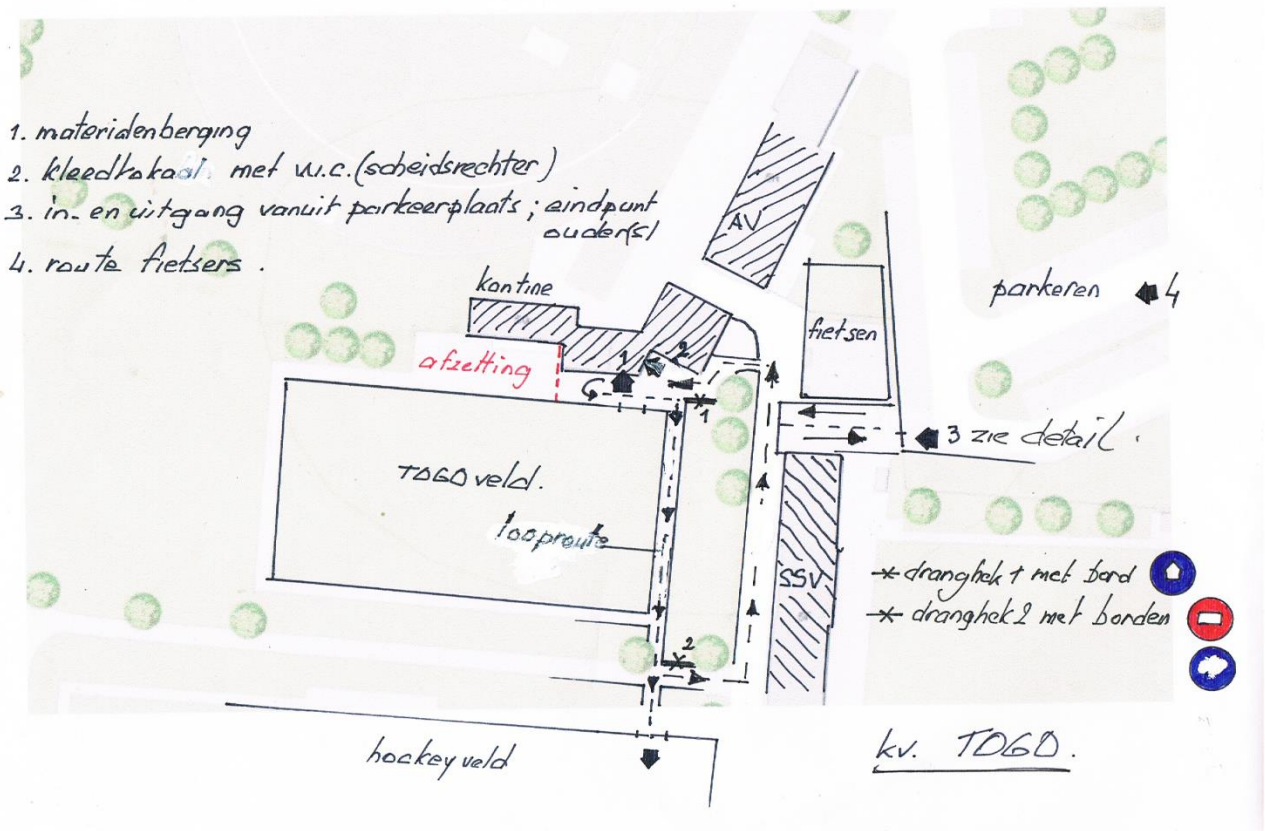 1. materialenberging
2. kleedlokaal met w.c. (scheidsrechter)
3. in- en uitgang vanuit parkeerplaats ; eindpunt
ouder(s)
4. route fietsers .
AV
kantine
parkeren 4
fietsen
afzetting
1
2
1
3 zie detail .
TOGO veld.
looproute
SSV
dranghek 1 met bord
dranghek 2 met borden
2
hockeyveld
kv. TOGO.